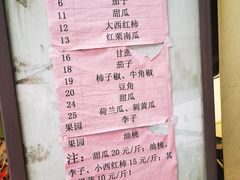 6 茄子
11 甜瓜
12 大西红柿
13 红栗南瓜
16 甘蓝
18 茄子
19 柿子椒、牛角椒
20 豆角
24 甜瓜
25 荷兰瓜、刺黄瓜
果园 李子
果园 油桃
注：甜瓜 20 元/斤；油桃、
李子、小西红柿 15 元/斤；其
10 元/斤！